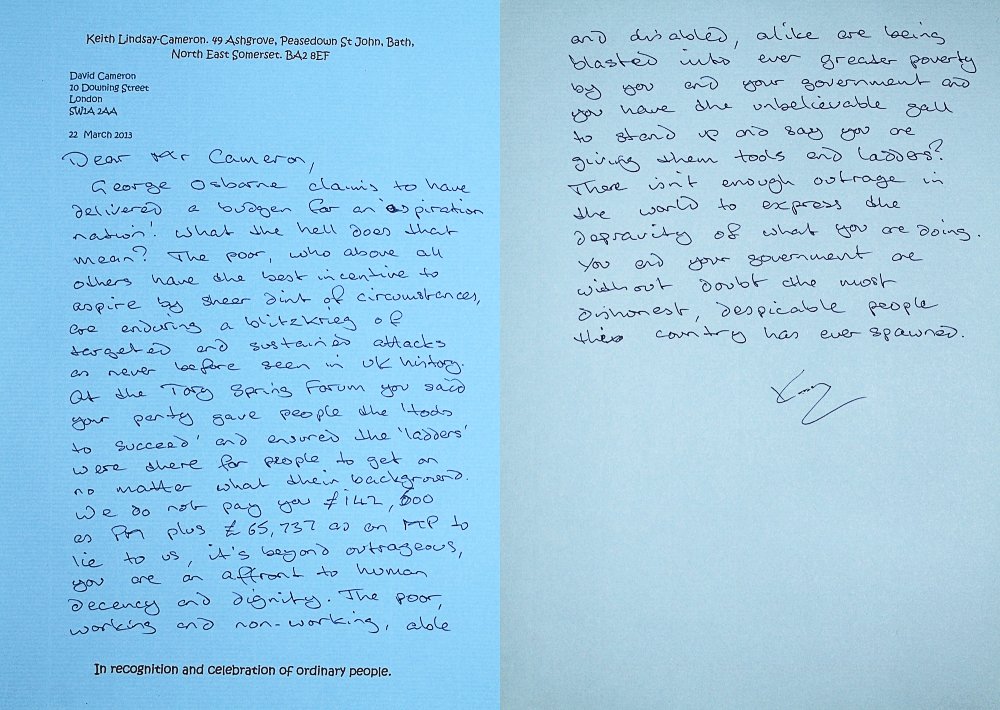 Keith Lindsay-Cameron. 49 Ashgrove, Peasedown St John, Bath,
North East Somerset. BA2 8EF
David Cameron
10 Downing Street
London
SW1A 2AA
22 March 2013
Dear Mr Cameron,
George Osborne claims to have
delivered a budgen for an 'aspiration
nation'. What the hell does that
mean? The poor, who above all
others have the best incentive to
aspire by sheer dint of circumstances,
are enduring a blitzkrieg of
targeted and sustained attacks
as never before seen in UK history.
At the Tory Spring Forum you said
your party gave people the 'tools
to succeed' and ensured the 'ladders'
were there for people to get on
no matter what their background.
We do not pay you £142,500
as PM plus £65,737 as an MP to
lie to us, it's beyond outrageous,
you are an affront to human
decency and dignity. The poor,
working and non-working, able
In recognition and celebration of ordinary people.
and disabled, alike are being
blasted into ever greater poverty
by you and your government and
you have the unbelievable gall
to stand up and say you are
giving them tools and ladders?
There isn't enough outrage in
the world to express the
depravity of what you are doing.
You and your government are
without doubt the most
dishonest, despicable people
this country has ever spawned.